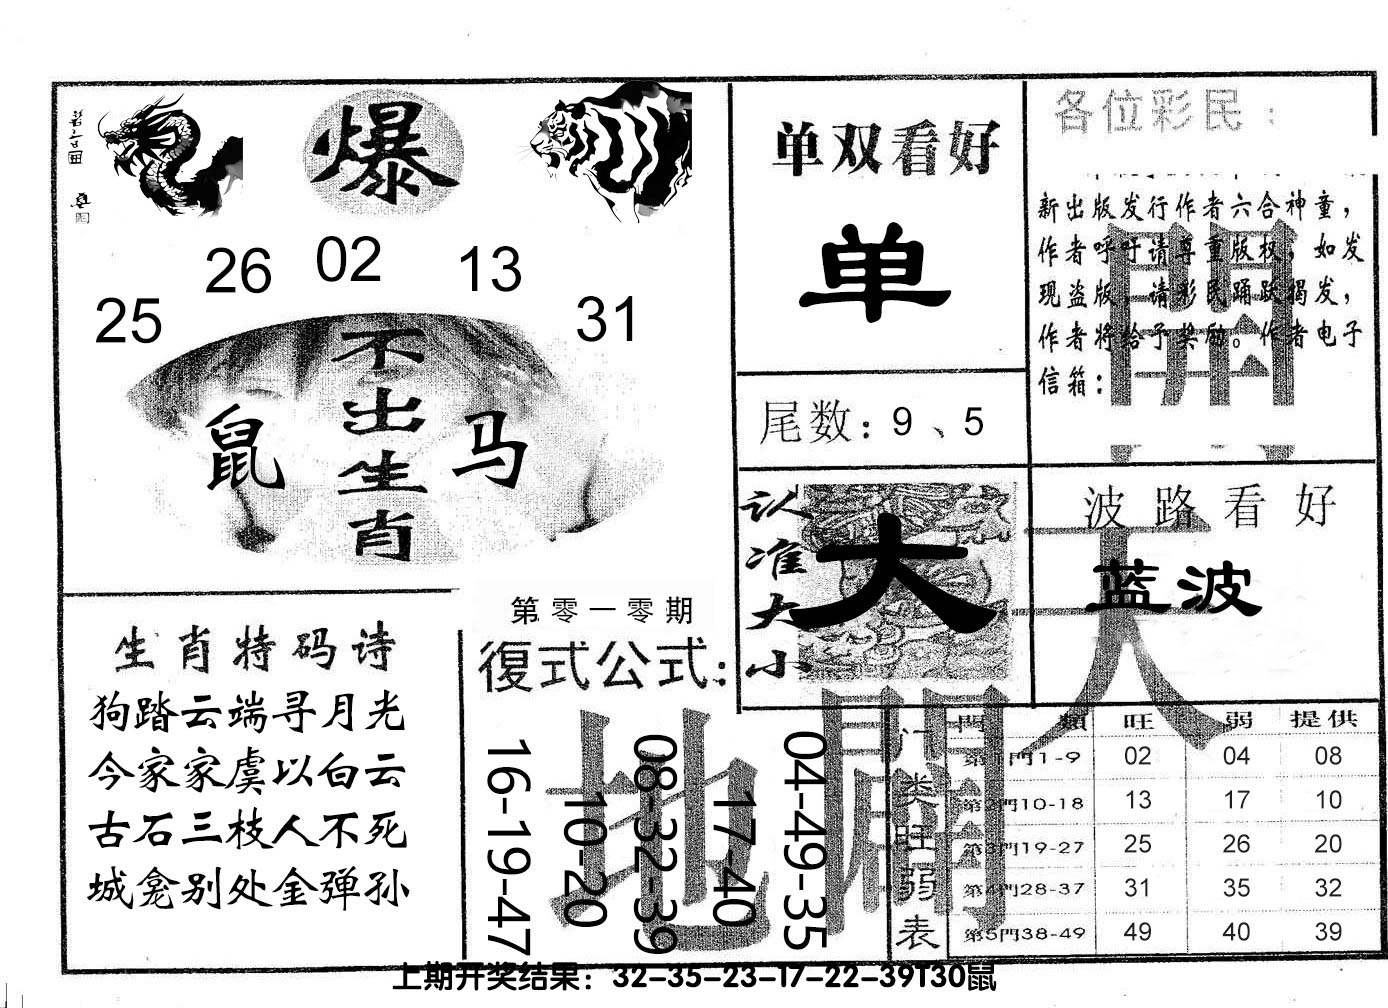 爆
26 02 13
25 31
不出生肖
鼠 马
生肖特码诗
狗踏云端寻月光
今家家虞以白云
古石三枝人不死
城龛别处金弹孙
第零一零期
復式公式:
16-19-47
10-20
08-32-39
17-40
04-49-35
单双看好
单
尾数: 9、5
认准大小
大
各位彩民:
新出版发行作者六合神童，
作者呼吁请尊重版权，如发
现盗版，请彩民踊跃揭发，
作者将给予奖励。作者电子
信箱:
波路看好
蓝波
天
地
開
開
门类旺弱表
門類 旺 弱 提供
第1門1-9 02 04 08
第2門10-18 13 17 10
第3門19-27 25 26 20
第4門28-37 31 35 32
第5門38-49 49 40 39
上期开奖结果：32-35-23-17-22-39T30鼠